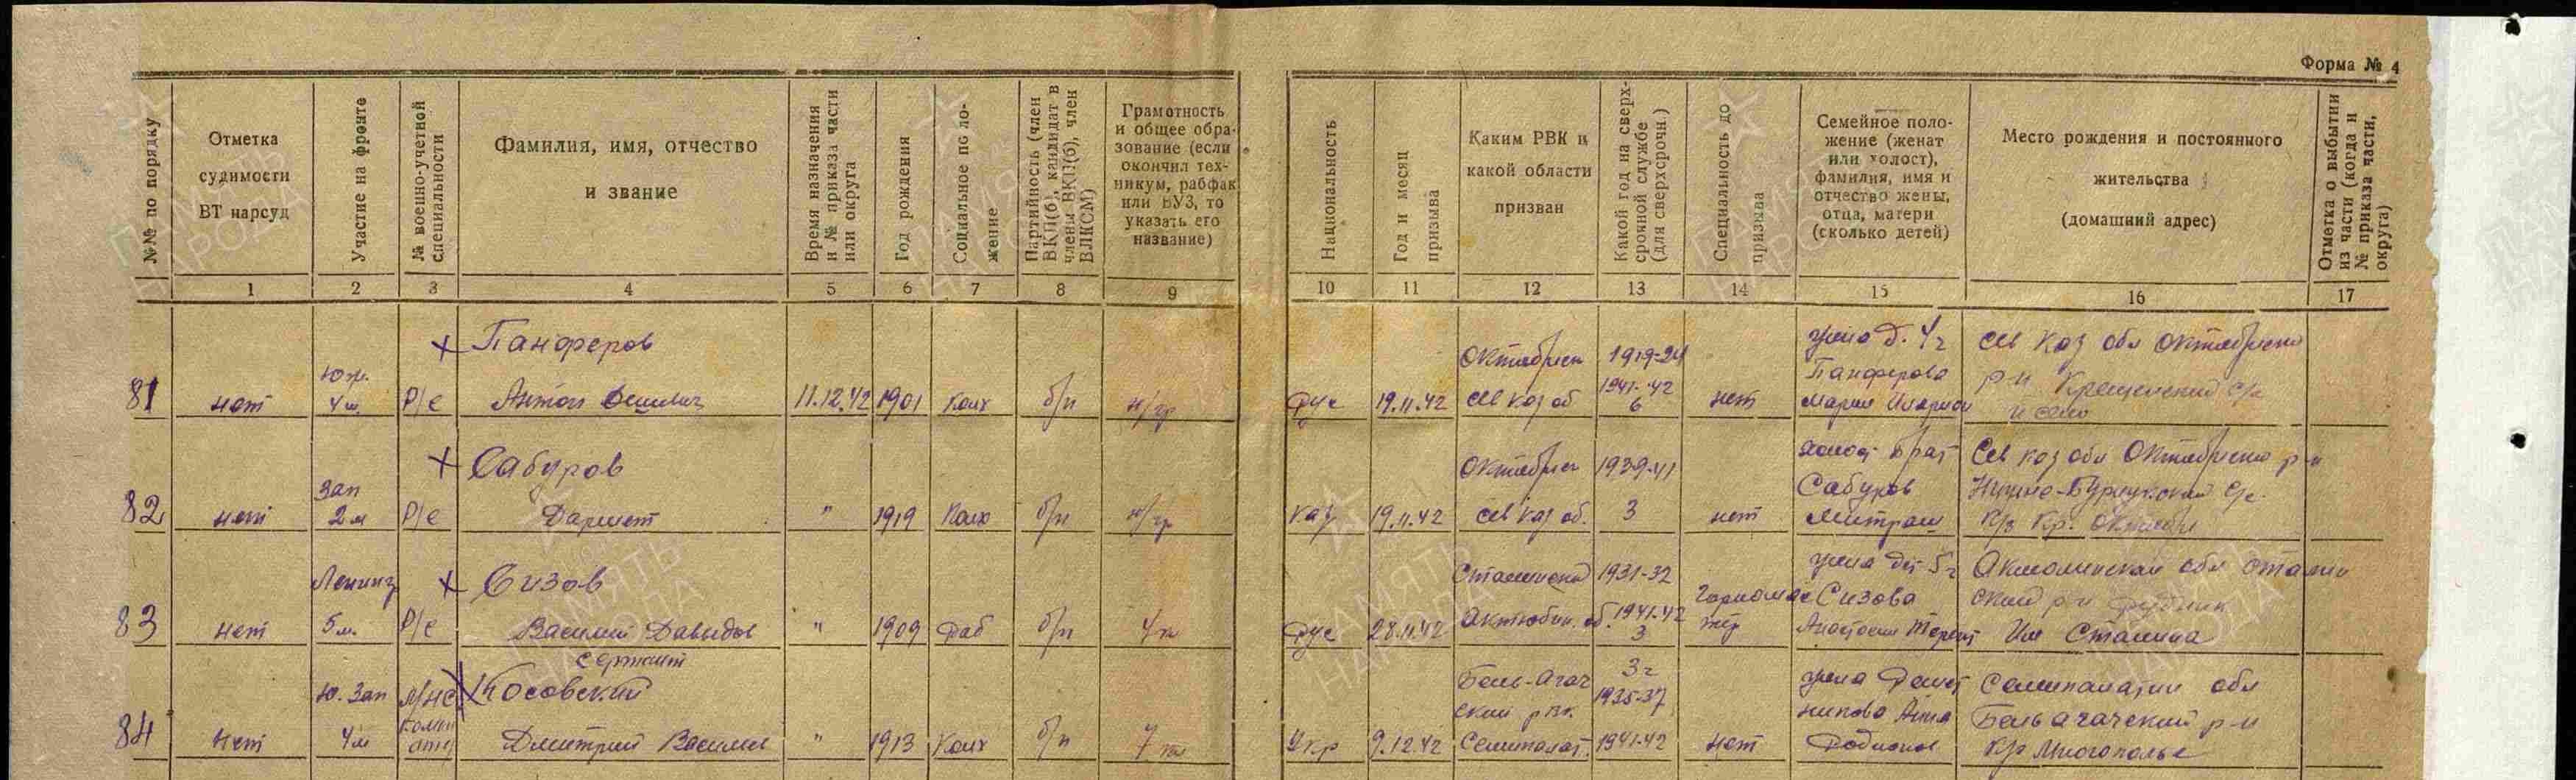 Форма № 4
№№ по порядку
Отметка
судимости
ВТ нарсуд
Участие на фронте
№ военно-учетной
специальности
Фамилия, имя, отчество
и звание
Время назначения
и № приказа части
или округа
Год рождения
Социальное по ло-
жение
Партийность (член
ВКП(б), кандидат в
члены ВКП(б), член
ВЛКСМ)
Грамотность
и общее обра-
зование (если
окончил тех-
никум, рабфак
или ВУЗ, то
указать его
название)
Национальность
Год и месяц
призыва
Каким РВК и
какой области
призван
Какой год на сверх-
срочной службе
(для сверхсрочн.)
Специальность до
призыва
Семейное поло-
жение (женат
или холост),
фамилия, имя и
отчество жены,
отца, матери
(сколько детей)
Место рождения и постоянного
жительства
(домашний адрес)
Отметка о выбытии
из части (когда и
№ приказа части,
округа)
1 2 3 4 5 6 7 8 9 10 11 12 13 14 15 16 17
81
нет
Юж.
4 м
Р/с
Панферов
Антон
11.12.42
1901
Колх
б/п
н/гр
Рус
19.11.42
Октябрьск
Сев каз об
1919-24
1941-42
6
нет
жена д. 4 ч
Панферова
Мария
Сев Каз обл Октябрьский
р-н Крещенский с/с
и село
82
нет
Зап
2 м
Р/с
Сабуров
Даршет
"
1919
Колх
б/п
н/гр
каз
19.11.42
Октябрьск
Сев Каз об.
1939-41
3
нет
холост брат
Сабуров
Митраш
Сев каз обл Октябрьский р-н
Нижне-Бурлукский с/с.
К/з Кр. Октябрь
83
нет
Ленинг
5 м.
Р/с
Сизов
Василий Давыдов
"
1909
Раб
б/п
4 кл
Рус
28.11.42
Сталинский
Актюбин. об.
1931-32
1941-42
3
жена дет 5 ч
Сизова
Анастасия Терент
Акмолинская обл Сталин
ский р-н Рудник
Им Сталина
84
нет
Ю. Зап
4 м
сержант
Косовский
Дмитрий Васильев
"
1913
Колх
б/п
7 кл
Укр
9.12.42
Бель-Агач
ский рвк.
Семипалат.
3 г
1935-37
1941-42
нет
жена
Анна
Родионов
Семипалатин обл
Бельагачский р-н
К/з Многополье